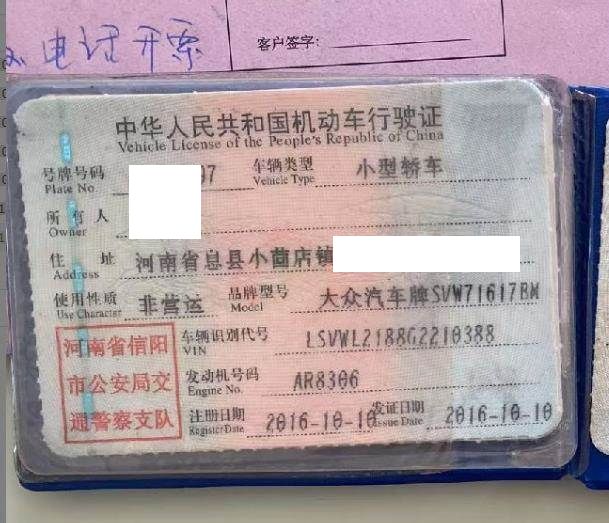 电话开票
客户签字:
中华人民共和国机动车行驶证
Vehicle License of the People's Republic of China
号牌号码 97 车辆类型 小型轿车
Plate No Vehicle Type
所有人
Owner
住址 河南省息县小茴店镇
Address
使用性质 非营运 品牌型号 大众汽车牌SVW71617BM
Use Character Model
河南省信阳
市公安局交
通警察支队
车辆识别代号 LSVWL2188G2210388
VIN
发动机号码 AR8306
Engine No.
注册日期 2016-10-10 发证日期 2016-10-10
Register Date Issue Date